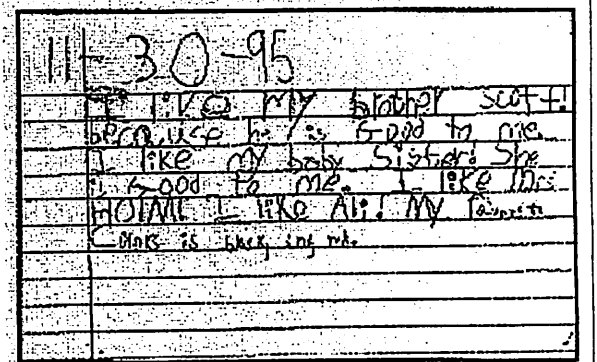 11-30-95
I like My brother scott!
because he is Good to me.
I like my baby Sister! She
is Good to me. I like Mrs
HOlMe I like Ali! My favorit
is black